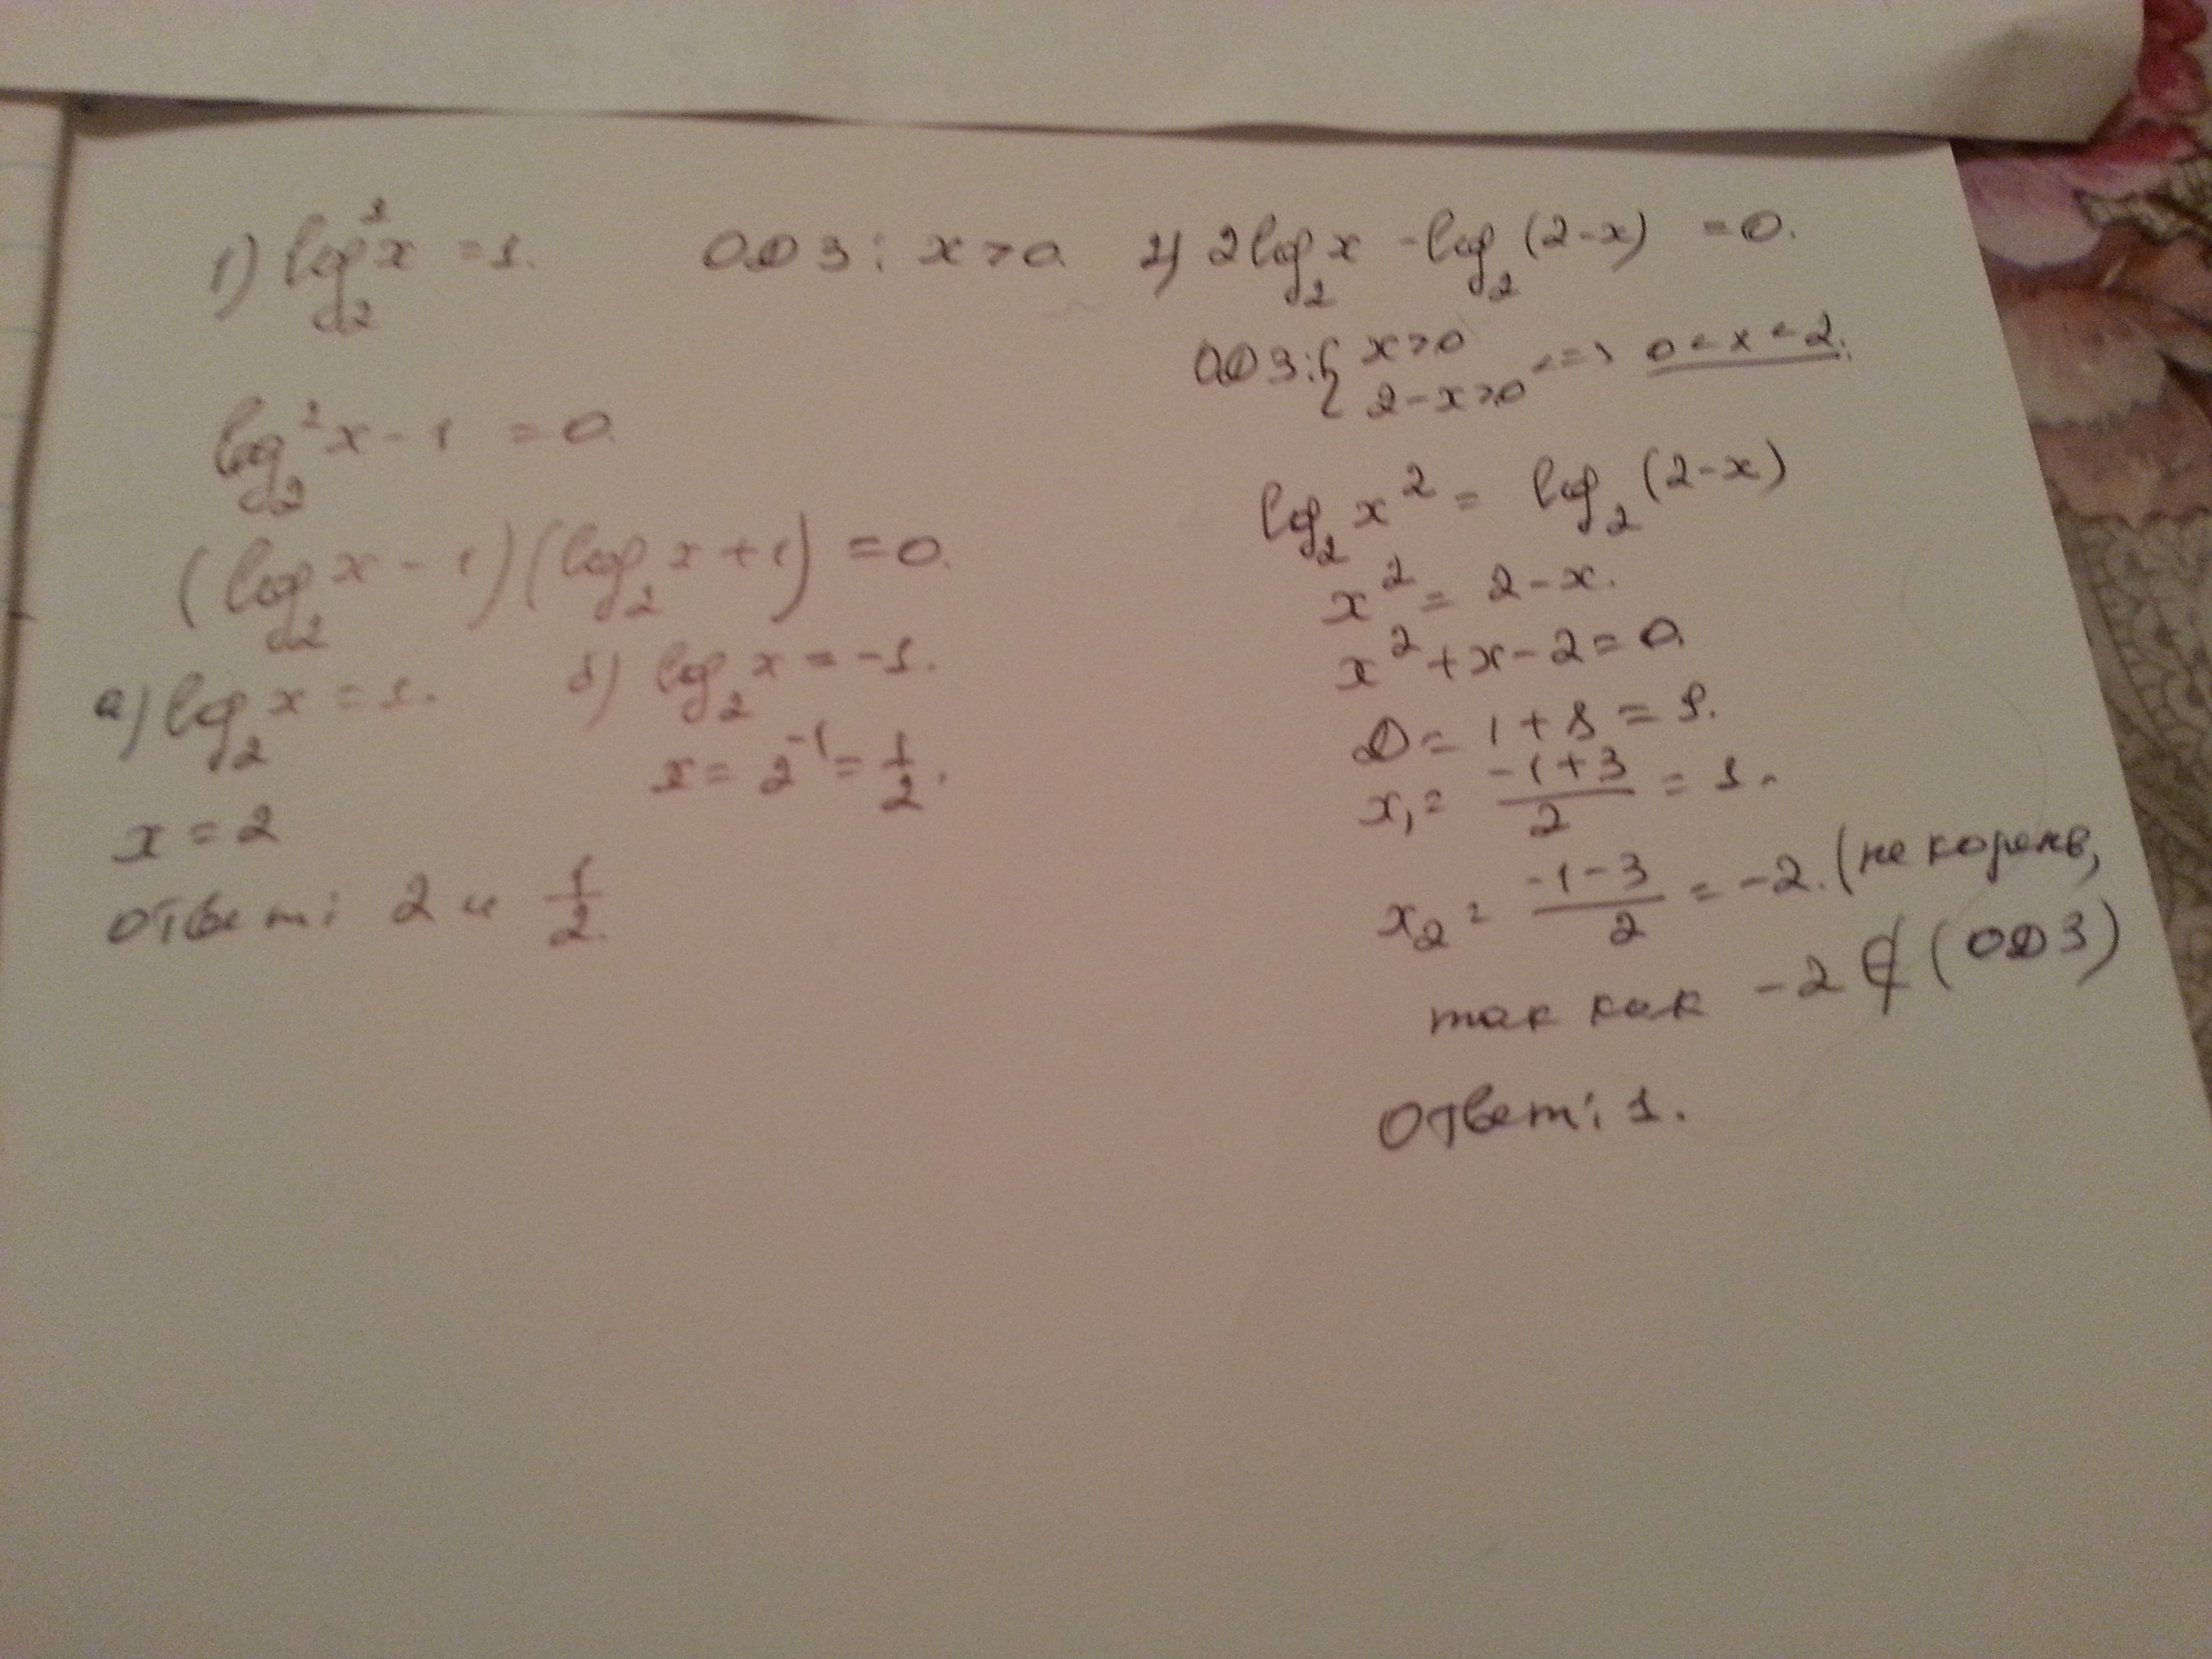 1) log₂²x = 1. ОДЗ: x > 0.
log₂²x - 1 = 0.
(log₂x - 1)(log₂x + 1) = 0.
а) log₂x = 1. б) log₂x = -1.
x = 2⁻¹ = 1/2.
x = 2
Ответ: 2 и 1/2.
2) 2log₂x - log₂(2-x) = 0.
ОДЗ: { x > 0
2 - x > 0 <=> 0 < x < 2.
log₂x² = log₂(2-x)
x² = 2 - x.
x² + x - 2 = 0.
D = 1 + 8 = 9.
x₁ = (-1+3)/2 = 1.
x₂ = (-1-3)/2 = -2. (не корень,
так как -2 ∉ (ОДЗ)
Ответ: 1.